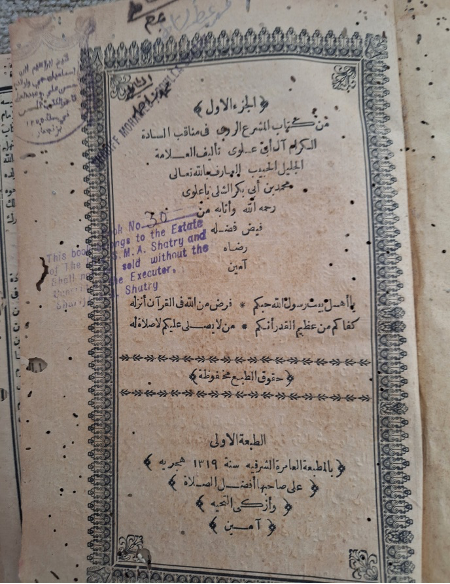 ﴿ الجزء الاول ﴾
من كتاب المشرع الروى فى مناقب السادة
الكرام آل أبى علوى تأليف العلامة
الجليل الحبيب العارف بالله تعالى
محمد بن أبى بكر الشلى باعلوى
رحمه الله وأثابه من
فيض فضله
رضاه
آمين
Book No. 30
This book belongs to the Estate
of The S.M.A. Shatry and
sold without the
the Executor.
Shatry
يا أهل بيت رسول الله حبكم * فرض من الله فى القرآن أنزله
كفاكم من عظيم القدر أنكم * من لا يصلى عليكم لا صلاة له
﴿ حقوق الطبع محفوظة ﴾
الطبعة الاولى
﴿ بالمطبعة العامرة الشرفيه سنة ١٣١٩ هجريه ﴾
﴿ على صاحبها أفضل الصلاة ﴾
﴿ وأزكى التحيه ﴾
﴿ آمين ﴾